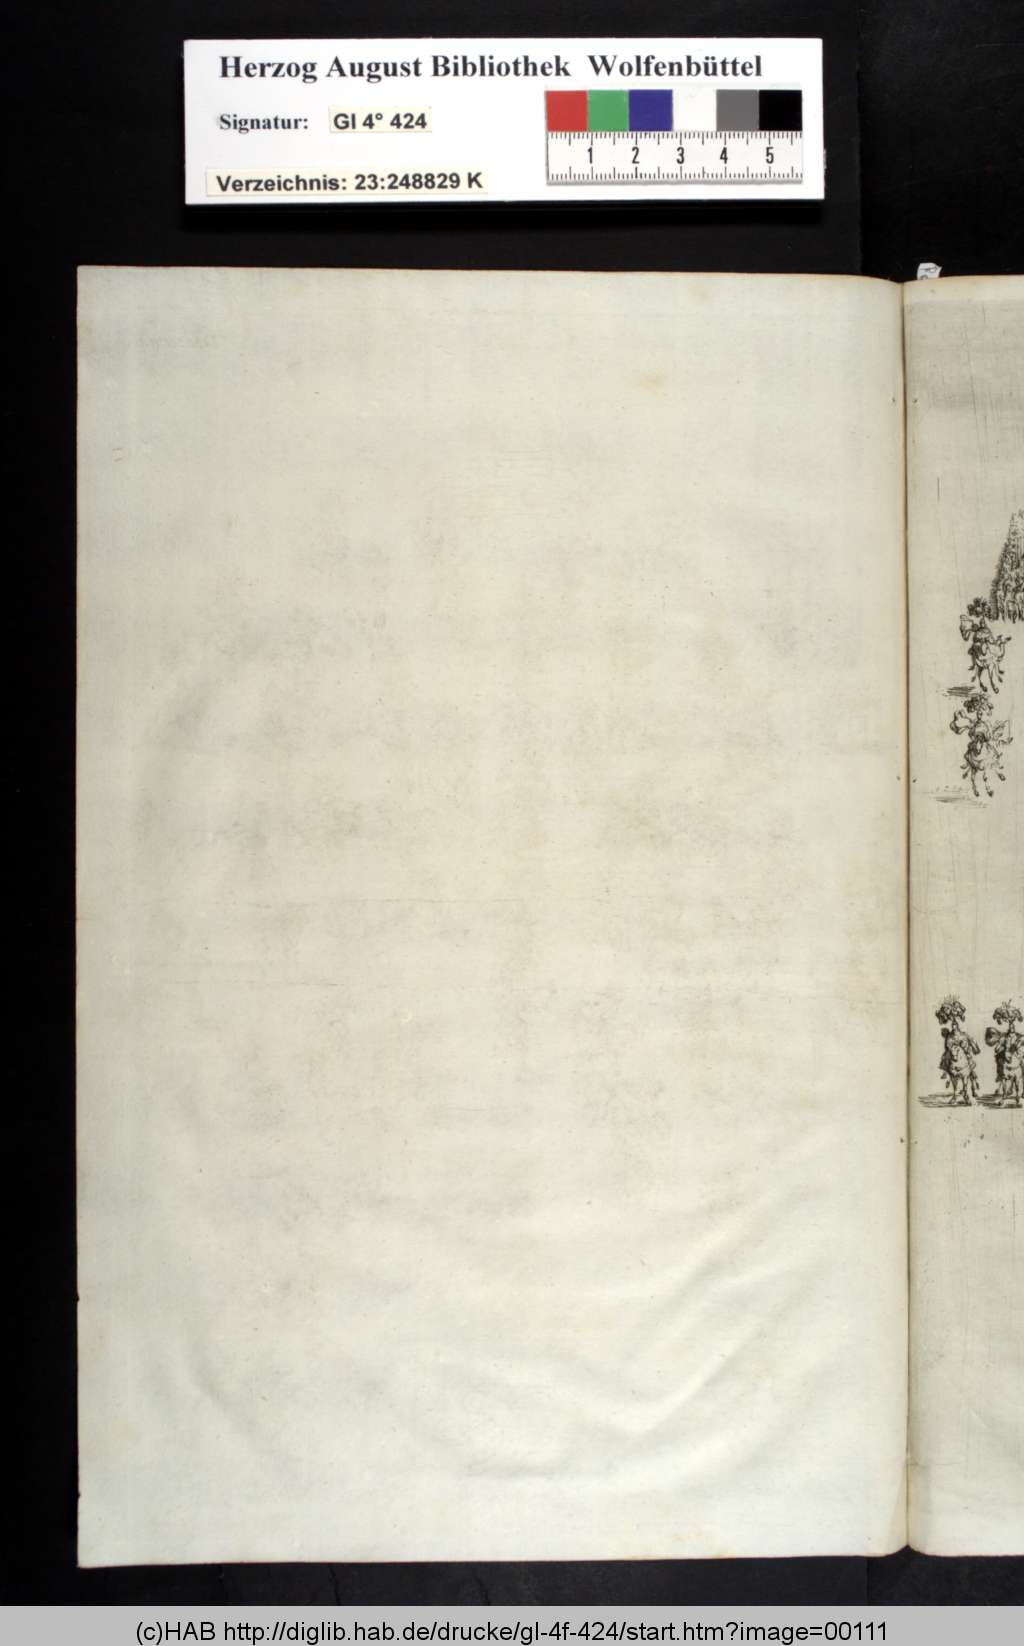 Herzog August Bibliothek Wolfenbüttel
Signatur: Gl 4° 424
Verzeichnis: 23:248829 K
1 2 3 4 5
(c)HAB http://diglib.hab.de/drucke/gl-4f-424/start.htm?image=00111